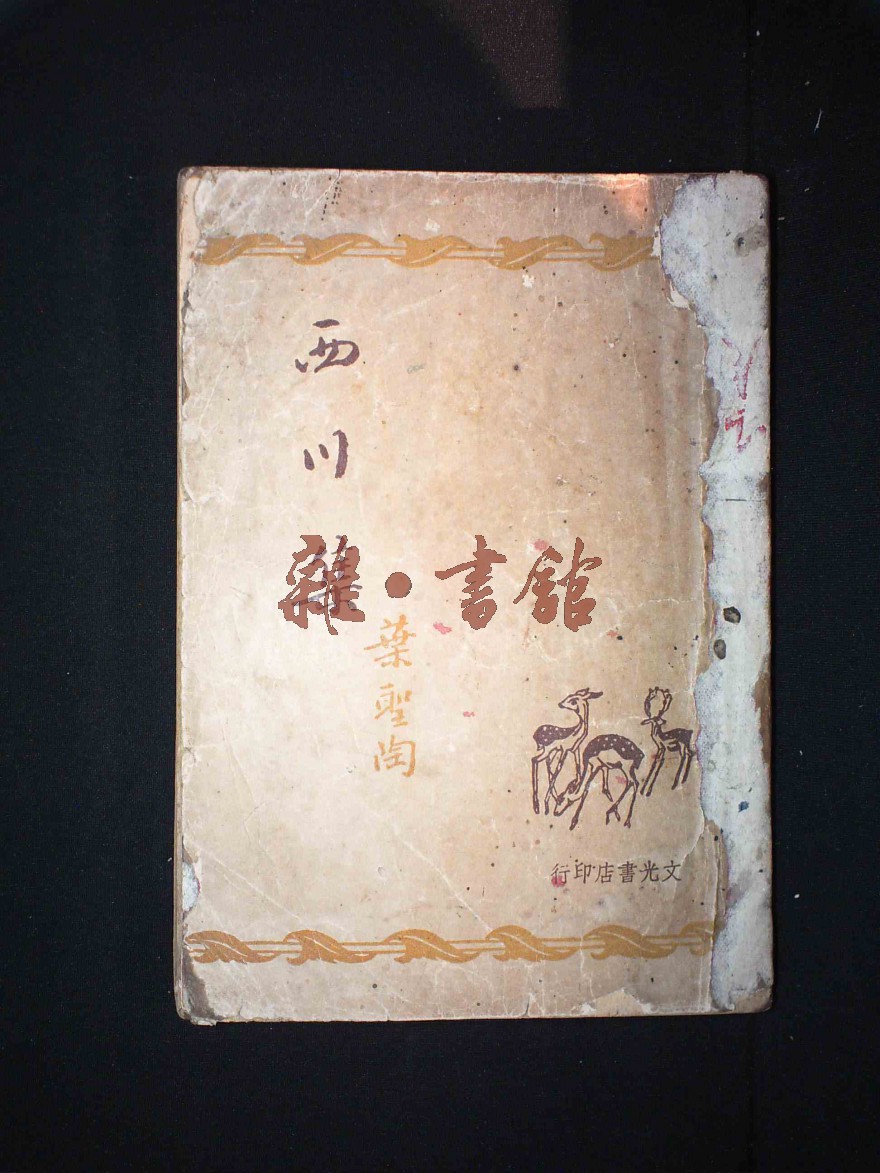 西川
葉聖陶
雜·書館
文光書店印行